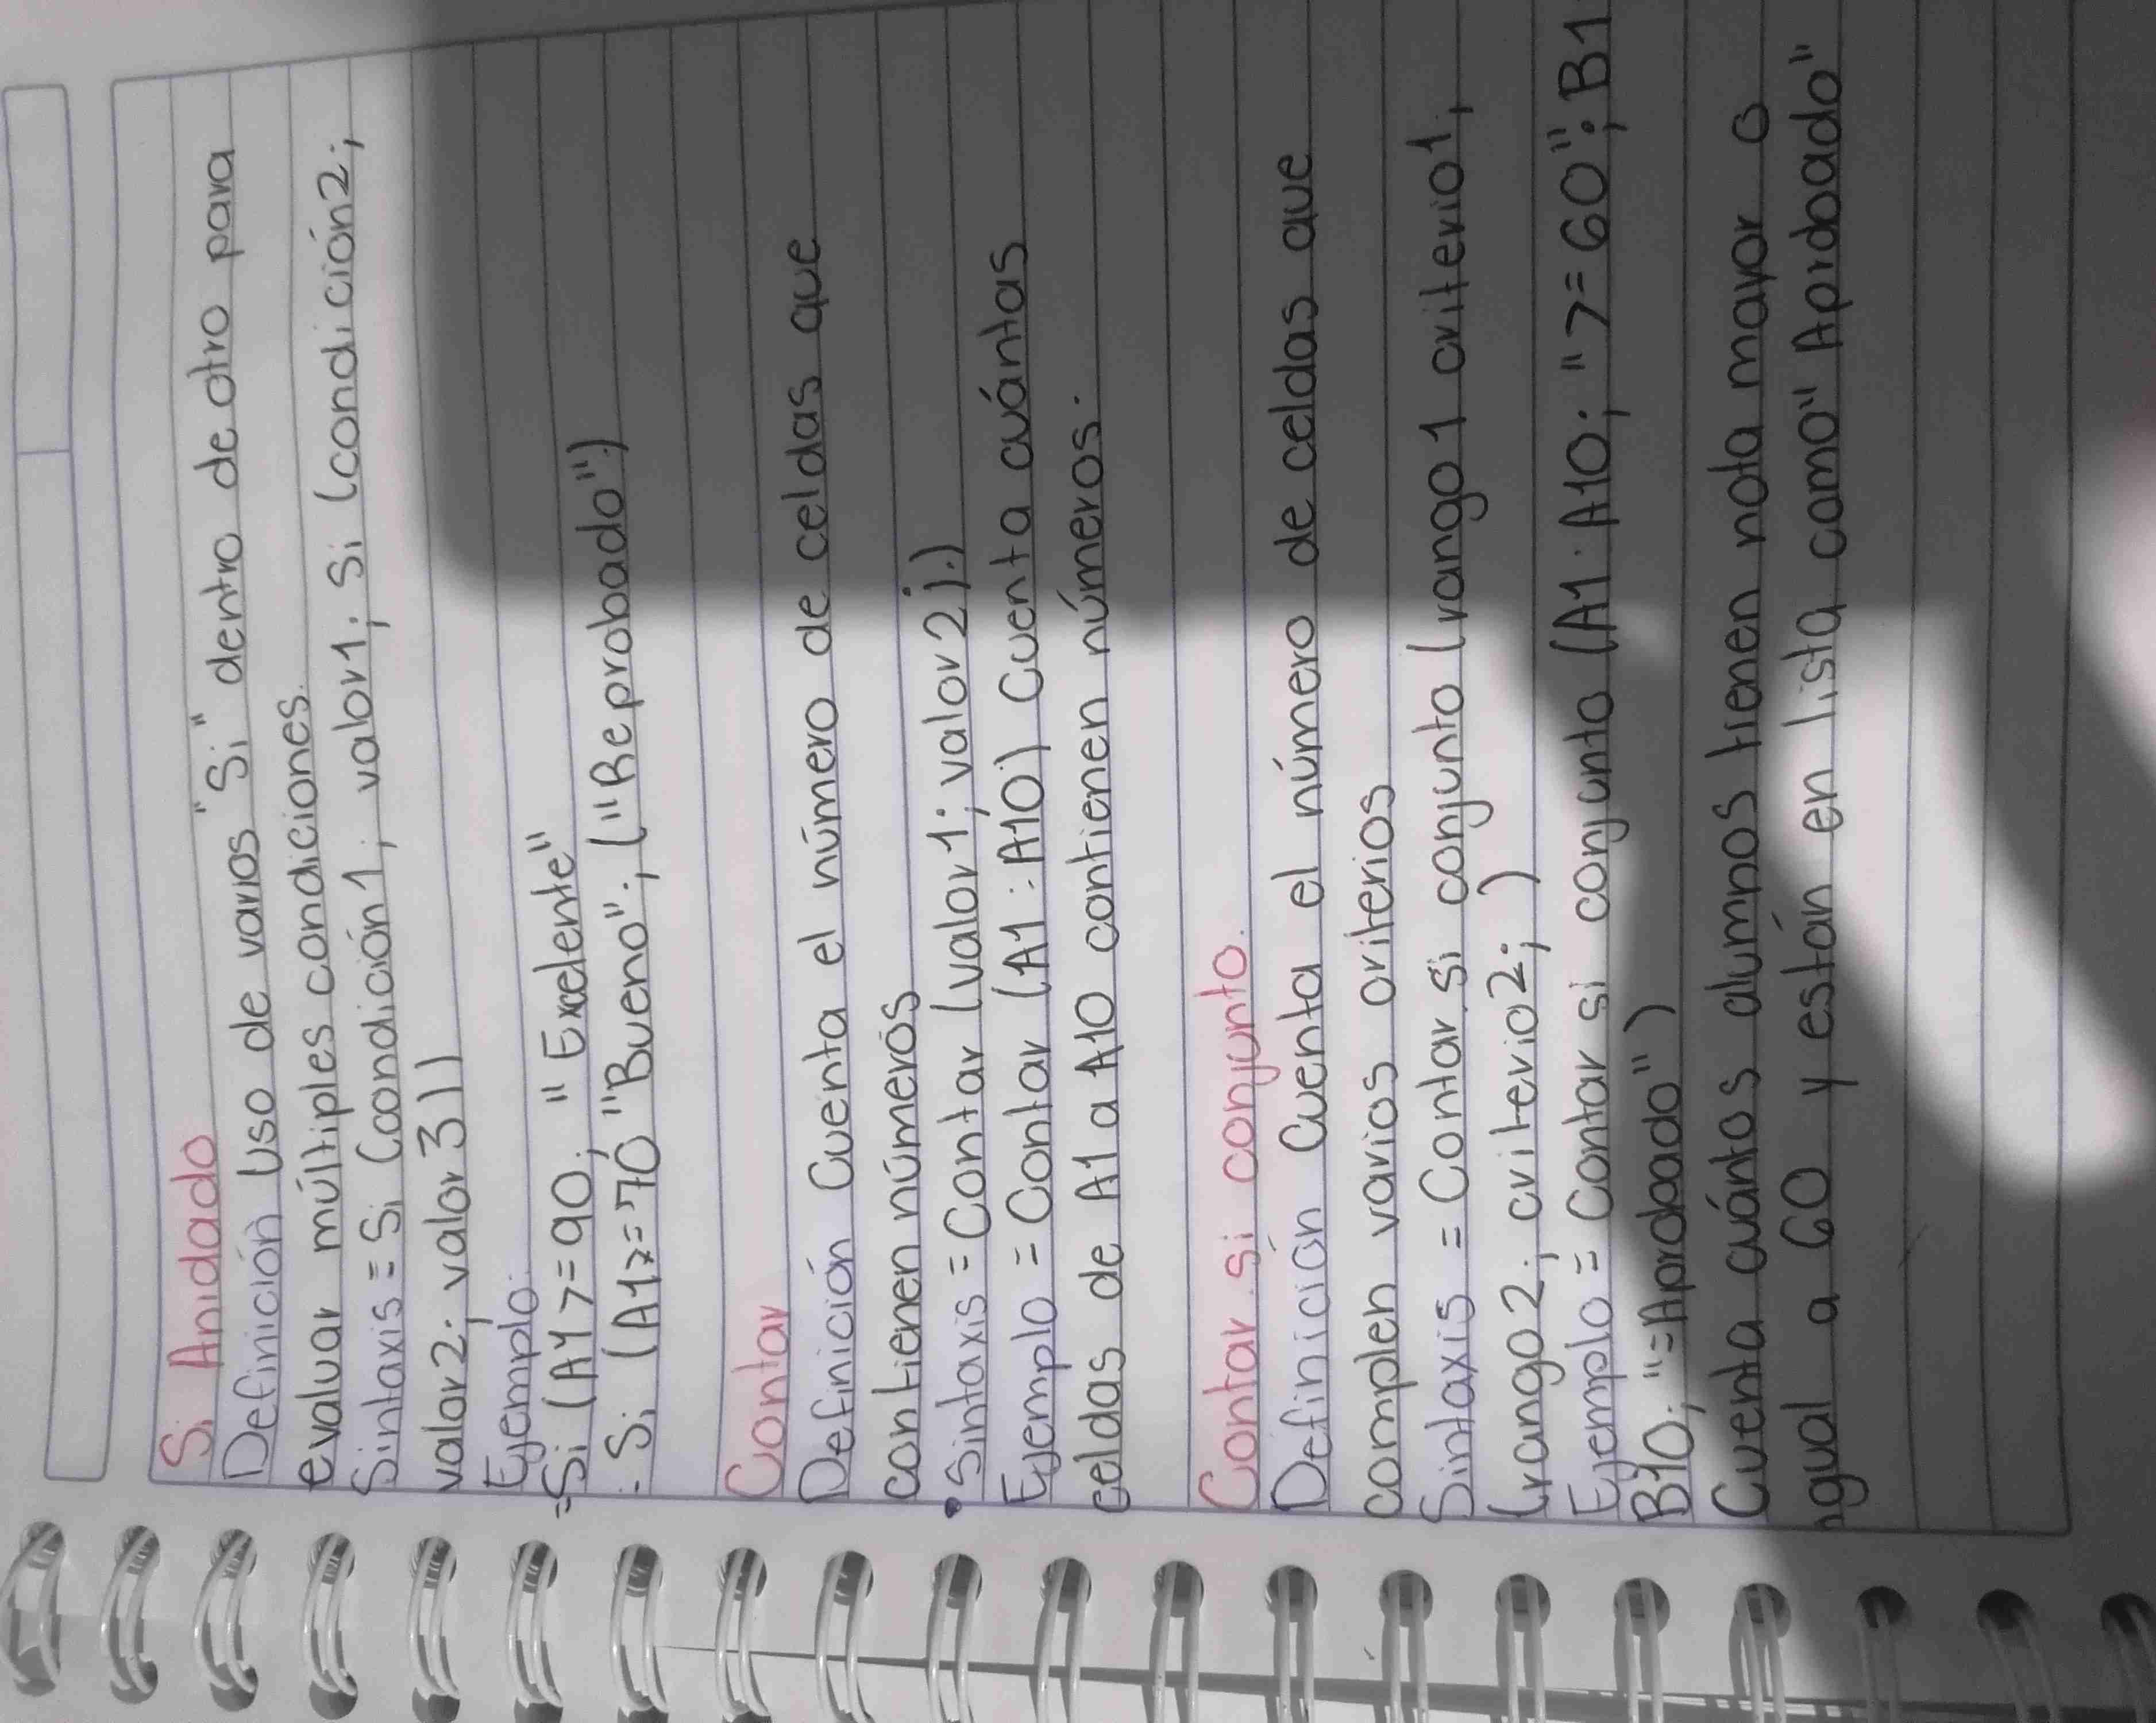 Si Anidado
Definición Uso de varios "Si" dentro de otro para
evaluar múltiples condiciones.
Sintaxis = Si (condición1; valor1; Si (condición2;
valor2; valor3))
Ejemplo:
=Si (A1>=90; "Excelente"
: Si (A1>=70 "Bueno"; ("Reprobado")
Contar
Definición Cuenta el número de celdas que
contienen números
• Sintaxis = Contar (valor1; valor2;.)
Ejemplo = Contar (A1:A10) Cuenta cuántas
celdas de A1 a A10 contienen números.
Contar si conjunto.
Definición Cuenta el número de celdas que
complen varios criterios
Sintaxis = Contar.si conjunto (rango1 criterio1,
(rango2; criterio2; )
Ejemplo = Contar si conjunto (A1:A10; ">=60"; B1
B10; "=Aprobado")
Cuenta cuántos alumnos tienen nota mayor o
igual a 60 y están en lista como "Aprobado"